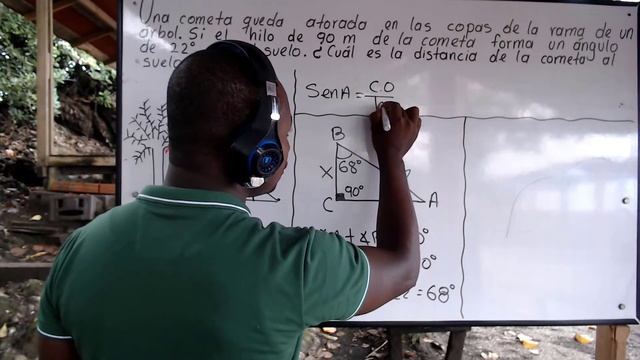 Una cometa queda atorado en las copas de la rama de un
arbol. Si el hilo de 90 m de la cometa forma un angulo
de 22° suelo. ¿Cuál es la distancia de la cometa al
suelo
SenA = C.O
B
68°
X
90°
C A
= 68°